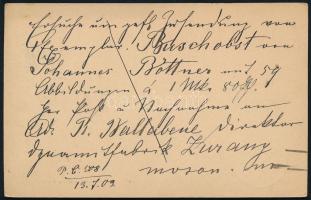 Ersuche um gefl. Zusendung von
1 Exemplar Buschobst von
Johannes Böttner mit 59
Abbildungen à 1 Mk. 80 Pf.
per Post u. Nachnahme an
Ad. A. Direktor
Dynamitfabrik Zurany
moson.
13./1.09.